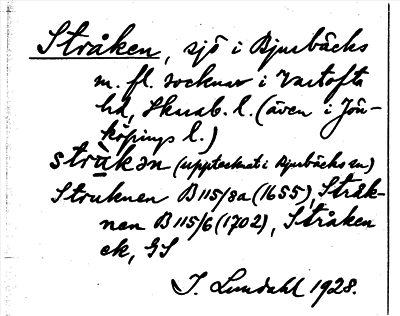 Stråken, sjö i Bjurbäcks
m. fl. socknar i Vartofta
hd, Skarab. l. (även i Jön-
köpings l.)
stràkən (upptecknat i Bjurbäcks sn)
Struknen B115/8a (1655), Stråk-
nen B115/6 (1702), Stråken
ek, GS
I. Lundahl 1928.